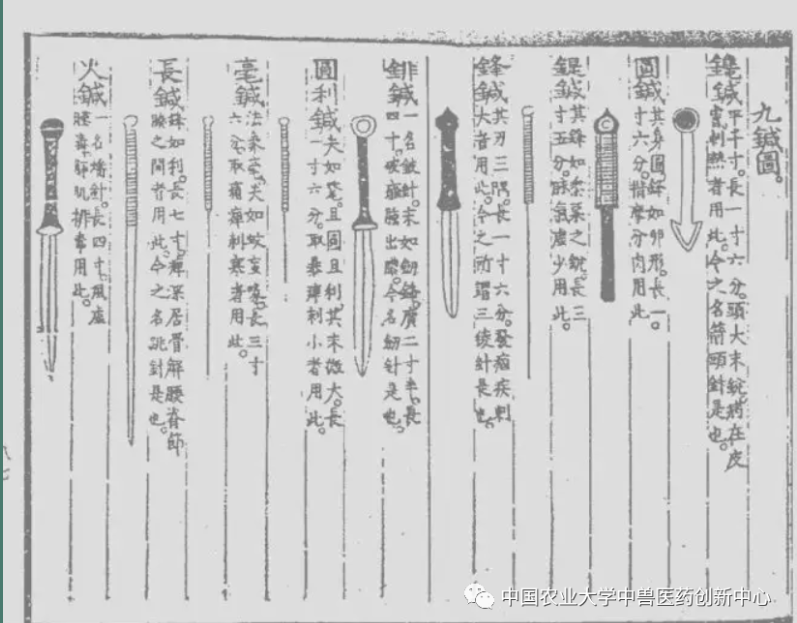 九鍼圖。
鑱鍼 平半寸。長一寸六分。頭大末銳。病在皮
膚。刺熱者用此。今之名箭頭針是也。
圓鍼 其身圓。鋒如卵形。長一
寸六分。揩摩分肉用此。
鍉鍼 其鋒如黍粟之銳。長三
寸五分。脉氣虛少用此。
鋒鍼 其刃三隅。長一寸六分。發痼疾刺
大者用此。今之所謂三稜針是也。
鍼 一名鈹針。末如劍鋒。廣二寸半。長
四寸。破癰腫出膿。今名劍針是也。
圓利鍼 尖如氂。且圓且利。其末微大。長
一寸六分。取暴痹刺小者用此。
毫鍼 法象毫。尖如蚊虻喙。長三寸
六分。取痛痹刺寒者用此。
長鍼 鋒如利。長七寸。痹深居骨解腰脊節
腠之間者用此。今之名跳針是也。
火鍼 一名燔針。長四寸。風虛
腫毒解肌排毒用此。
中国农业大学中兽医药创新中心